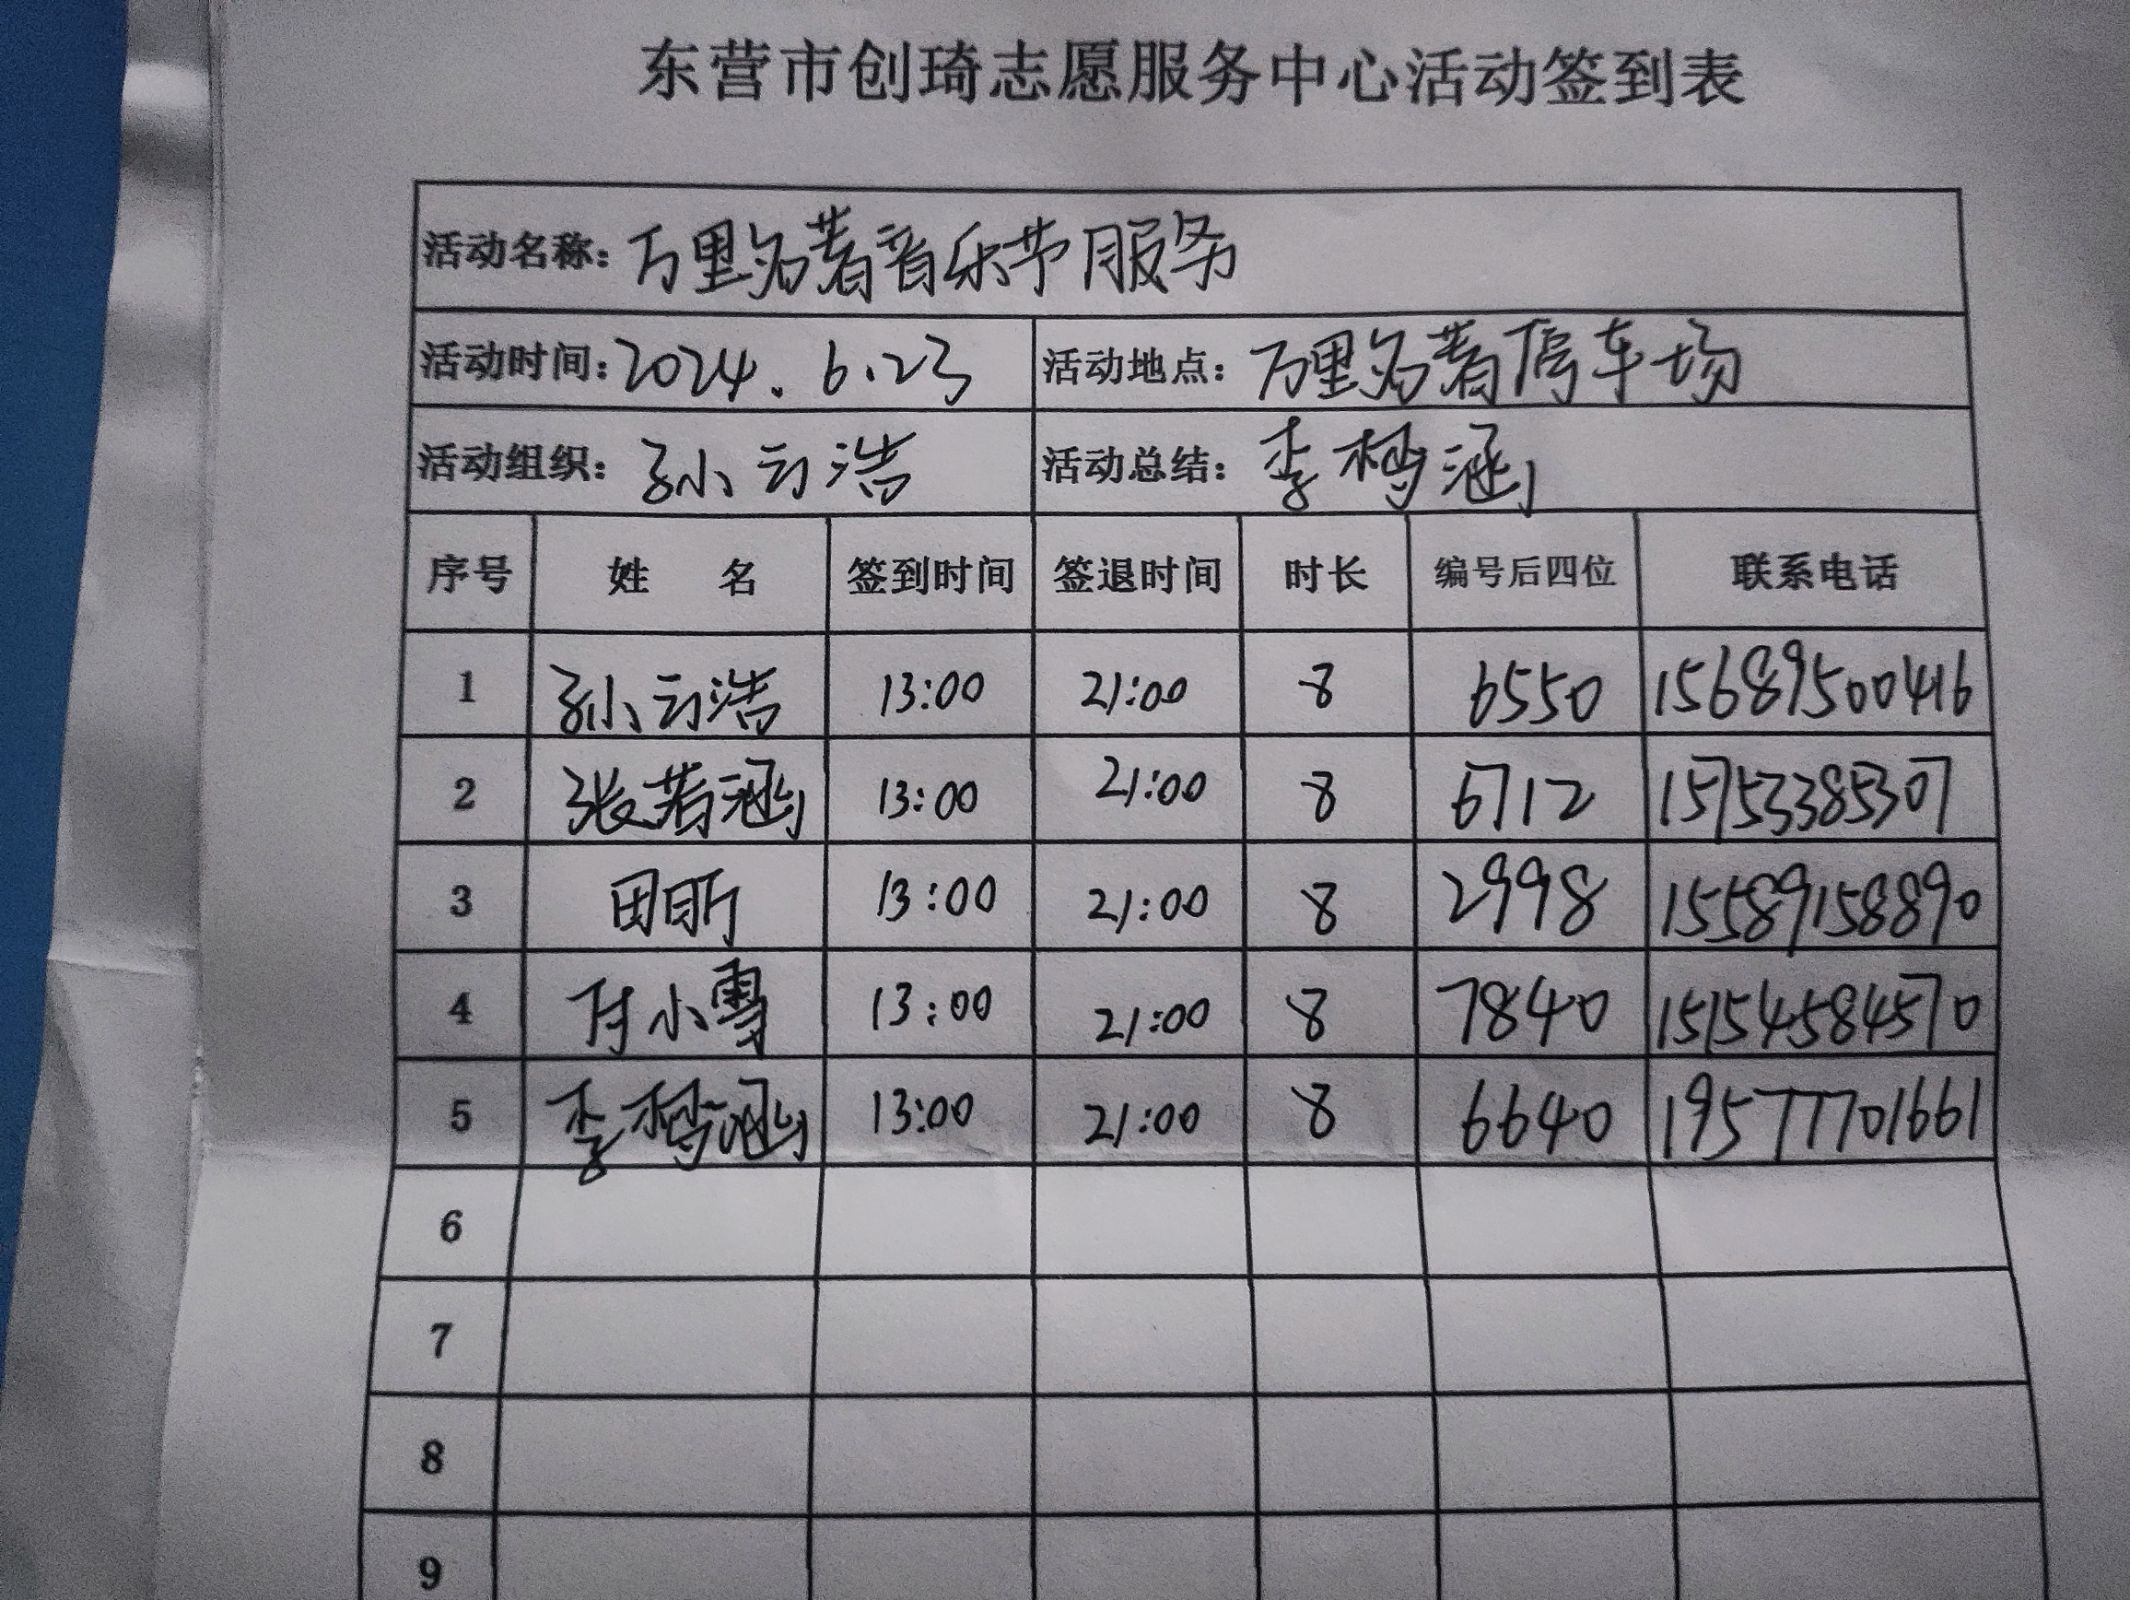 东营市创琦志愿服务中心活动签到表
活动名称：万里名著音乐节服务
活动时间：2024.6.23 活动地点：万里名著停车场
活动组织：孙云浩 活动总结：李梦涵
序号 姓 名 签到时间 签退时间 时长 编号后四位 联系电话
1 孙云浩 13:00 21:00 8 6550 15689500416
2 张若涵 13:00 21:00 8 6712 15753385307
3 田昕 13:00 21:00 8 2998 15589158890
4 付小雪 13:00 21:00 8 7840 15154584570
5 李梦涵 13:00 21:00 8 6640 19577701661
6
7
8
9